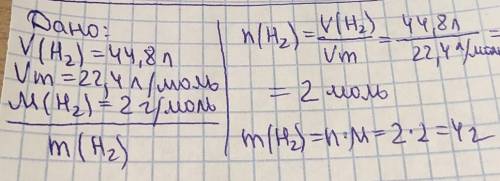 Дано:
V(H₂)=44,8л
Vm=22,4л/моль
M(H₂)=2г/моль
m(H₂)
n(H₂)=V(H₂)/Vm=44,8л/22,4л/моль=
=2моль
m(H₂)=n·M=2·2=4г